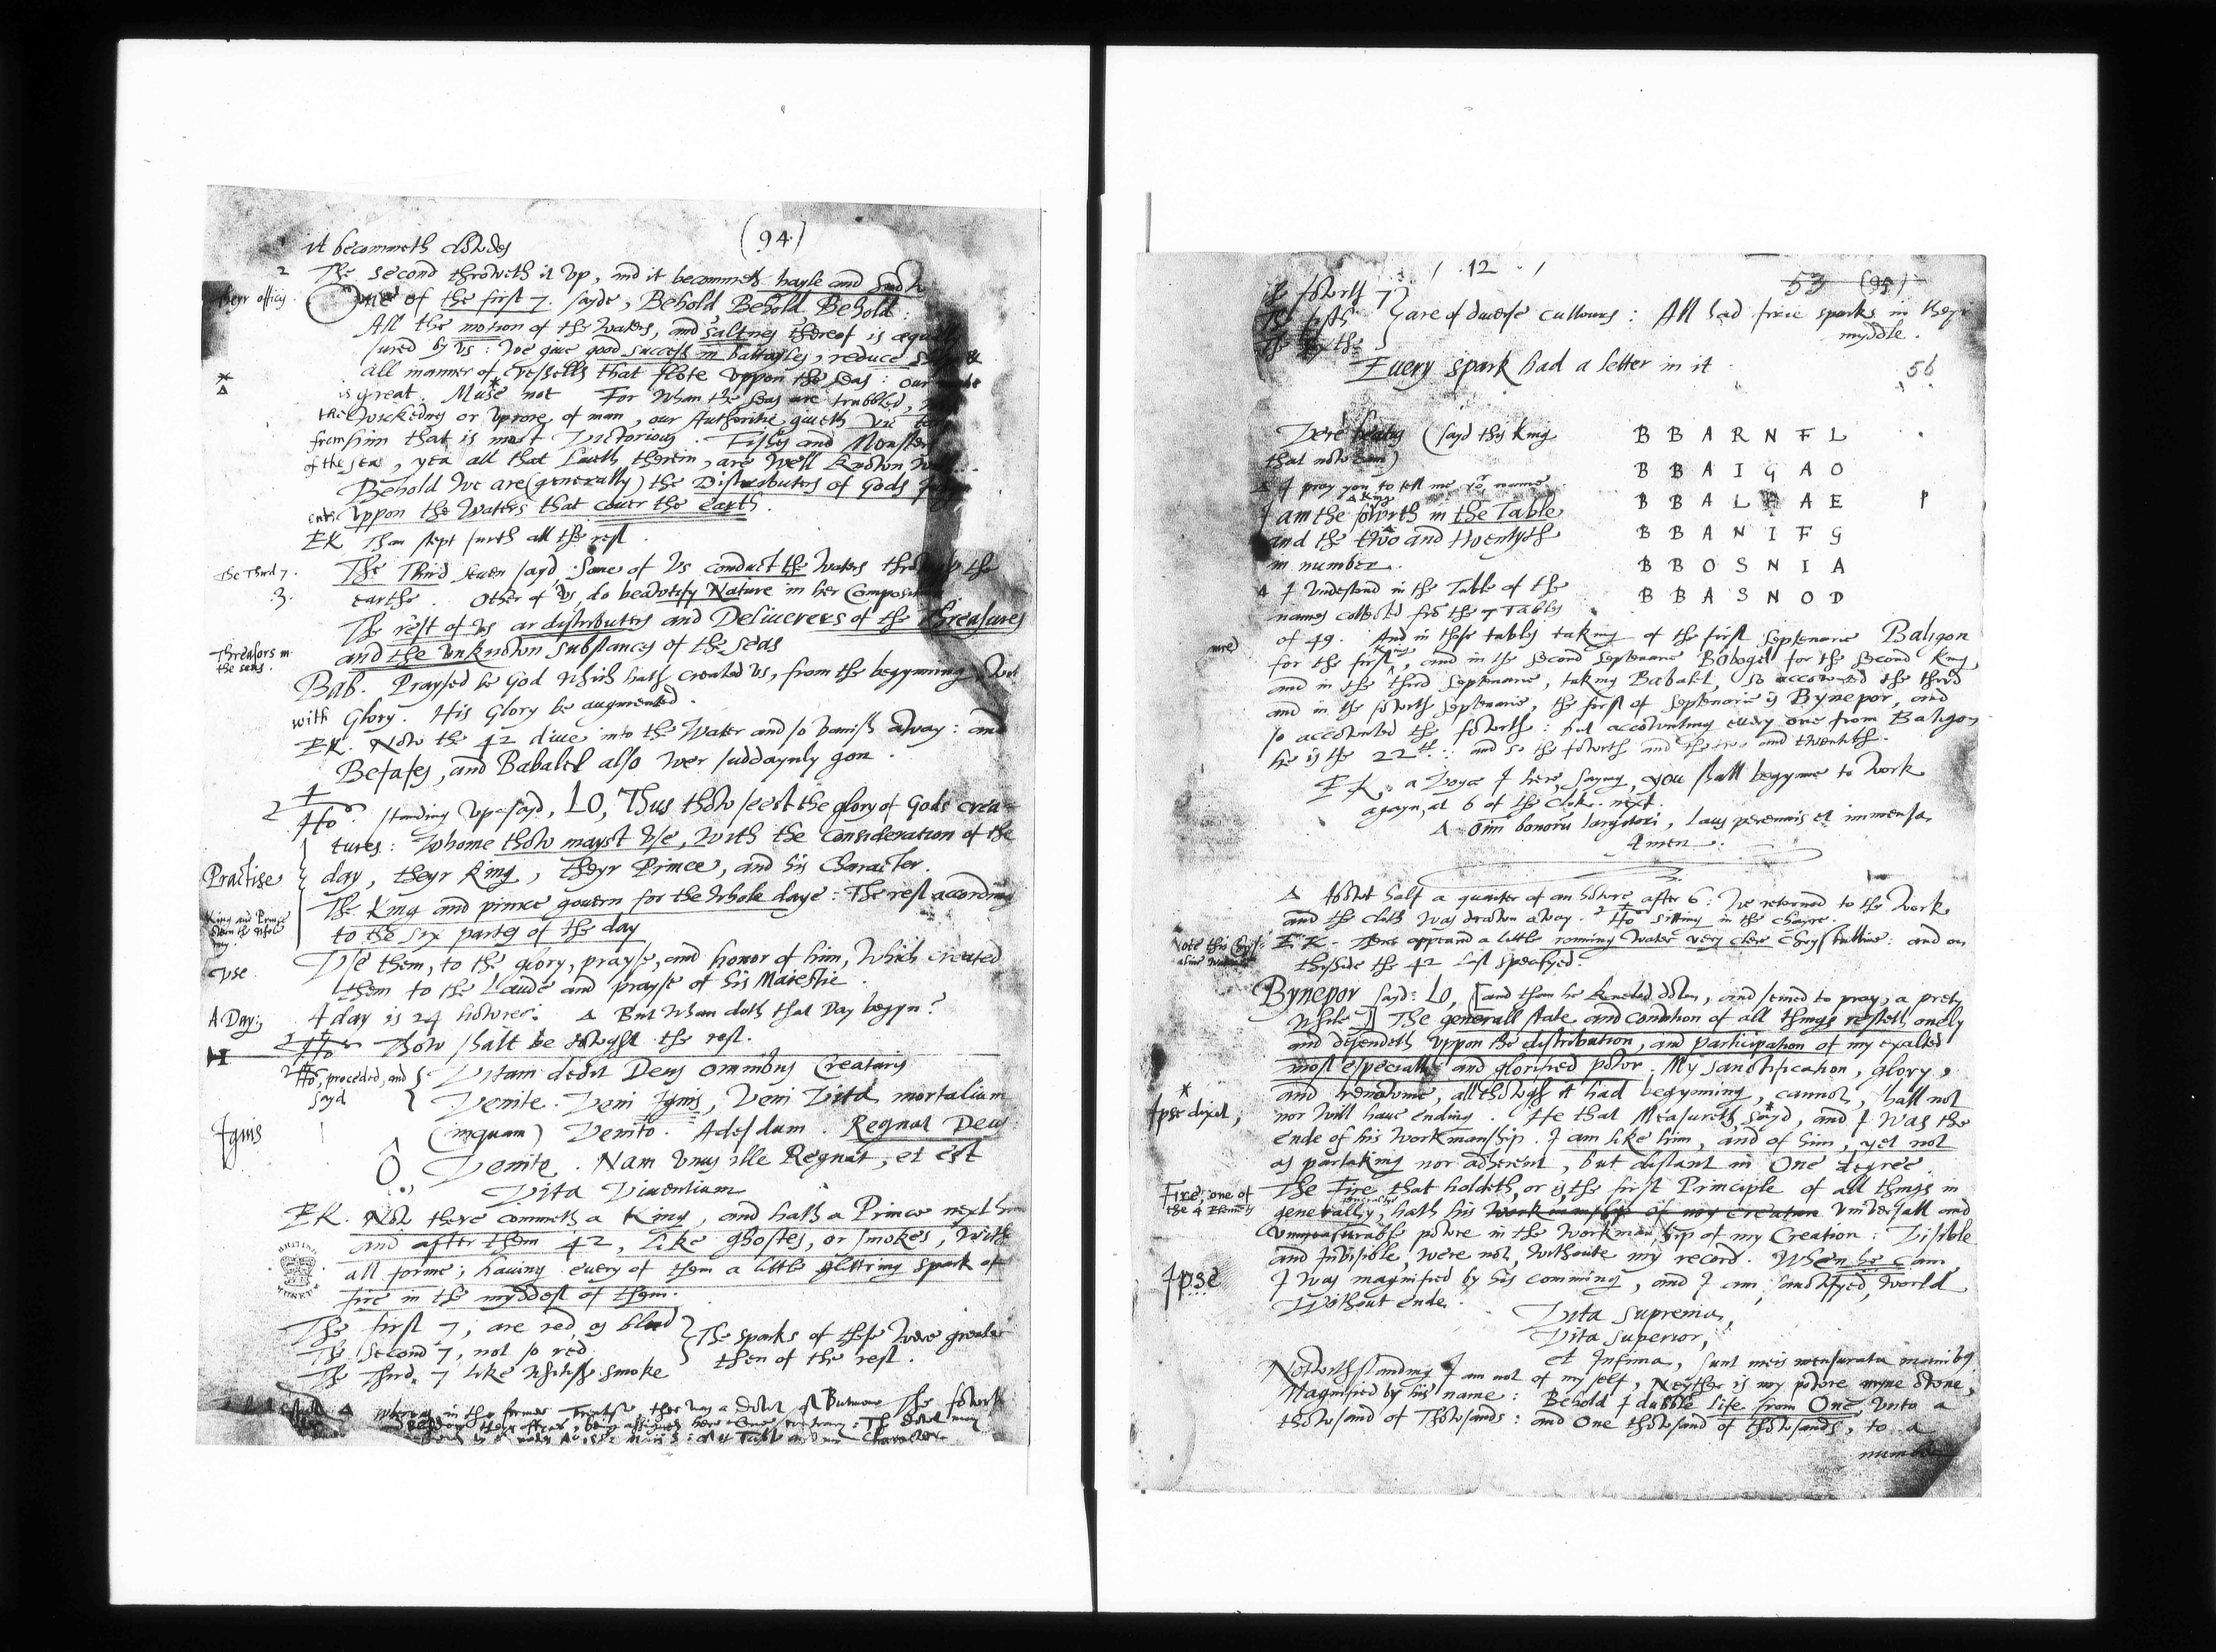 (94)
it becommeth clowdes
2 The second throweth it vp, and it becommeth hayle and snow
theyr offices. One of the first 7. sayde, Behold, Behold, Behold:
All the motion of the waters, and saltnes thereof is
sured by vs: We giue good success in battayles, reduce
all manner of vessells that flote vppon the seas: our
is great. Muse not For whan the seas are trubbled,
the wickednes or vprore of man, our Authoritie giueth
from him that is most Victorious. Fishes and Monsters
of the sea, yea all that liueth therein, are well known
Behold we are (generally) the Distributers of Gods
vppon the waters that couer the earth.
EK Than stept furth all the rest.
The Third 7. The Third seuen sayd: Some of vs conduct the waters through the
3. earthe. Other of vs, do beawtify Nature in her Composition
The rest of vs ar distributers and Deliuerers of the threasures
Threasors in and the vnknown substances of the seas
the seas.
Bab. Praysed be God which hath created vs, from the begynning
with Glory. His Glory be augmented.
EK. Now the 42 diue into the water and so vanish away: and
Befafes, and Babalel also wer suddaynly gon.
Ho standing vp sayd, LO, Thus thow seest the glory of Gods crea-
tures: Whome thow mayst vse, with the consideration of the
Practise day, theyr king, theyr Prince, and his Character.
The king and prince govern for the whole daye: The rest according
King and Prince
to the six partes of the day
vse. Vse them, to the glory, prayse, and honor of him, which created
them to the Laude and prayse of his Maiestie.
A Day: A day is 24 howres: Δ But whan doth that Day begyn?
Ho Thow shalt be towght the rest.
Ho, proceded, and sayd { Vitam dedit Deus omnibus Creaturis
Venite. Veni Ignis, Veni Vita mortalium
Ignis (inquam) Venito. Adesdum. Regnat Deus
Ô Venite. Nam vnus ille Regnat, et est
Vita Viuentium
EK. Now there commeth a King, and hath a Prince next him
and after them 42, like ghostes, or smokes, with
all forme; hauing euery of them a little glittring spark of
fire in the myddest of them.
The first 7, are red, as blud
The second 7, not so red } The sparks of these were greater
The Third, 7 like whitish smoke then of the rest.
Δ whereas in the former Treatise ther was a Dowt of Butmono The fowrth
12
53 (95)
The fowrth 7
The fifth } are of diuerse cullours: All had firie sparks in theyr
The syxthe myddle.
Euery spark had a letter in it
56
(sayd this king B B A R N F L
that now cam) B B A I G A O
Δ I pray you to tell me yor name
I am the fowrth in the Table B B A L A E
and the two and twentyth B B A N I F G
in number. B B O S N I A
Δ I vnderstand in the Table of the B B A S N O D
names collected frō the 7 Tables
of 49. And in those tables taking of the first septenarie Baligon
for the first king, and in the second septenarie Bobogel for the second king,
and in the third septenarie, taking Babalel, so accownted the third
and in the fowrth septenarie, the first of septenarie is Bynepor, and
so accownted the fowrth: but accownting euery one from Baligon
he is the 22th: and so the fowrth and the two and twentith.
EK, a Voyce I here, saying, you shall begynne to work
agayn, at 6 of the clok. next.
Δ Omī bonorū largitori, laus perennis et immensa,
Amen.
Δ Abowt half a quarter of an howre, after 6: we returned to the work
and the cloth was drawn away. Ho sitting in the chayre.
Note this Chrys- EK. There appeared a little ronning water very clere Chrystalline: and on
thisside the 42 last specifyed.
Bynepor sayd: LO, [and than he kneled down, and semed to pray, a prety
while] The generall state and condition of all things resteth onely
and dependeth vppon the distribution, and participation of my exalted
most especiall and glorified powr. My sanctification, glory,
and renowne, allthowgh it had begynning, cannot, shall not
* Ipse dixit, nor will haue ending. He that Measureth, sayd, and I was the
ende of his workmanship. I am like him, and of him, yet not
as partaking nor adherent, but distant in One degree.
Fire, one of The Fire that holdeth, or is the first Principle of all things in
the 4 Elements generally, hath his workmanship of my creation vniversall and
vnmeasurable powre in the workmanship of my Creation: Visible
and Inuisible, were not, withowte my record. When he cam
Ipse I was magnified by his comming, and I am sanctifyed, world
Without ende.
Vita suprema,
Vita superior,
et Infima, sunt meis mensurata manibus.
Notwithstanding I am not of my self, Neyther is my powre myne owne,
Magnified by his name: Behold I dubble life from One, vnto a
thowsand of Thowsands: and One thowsand of thowsands, to a
number